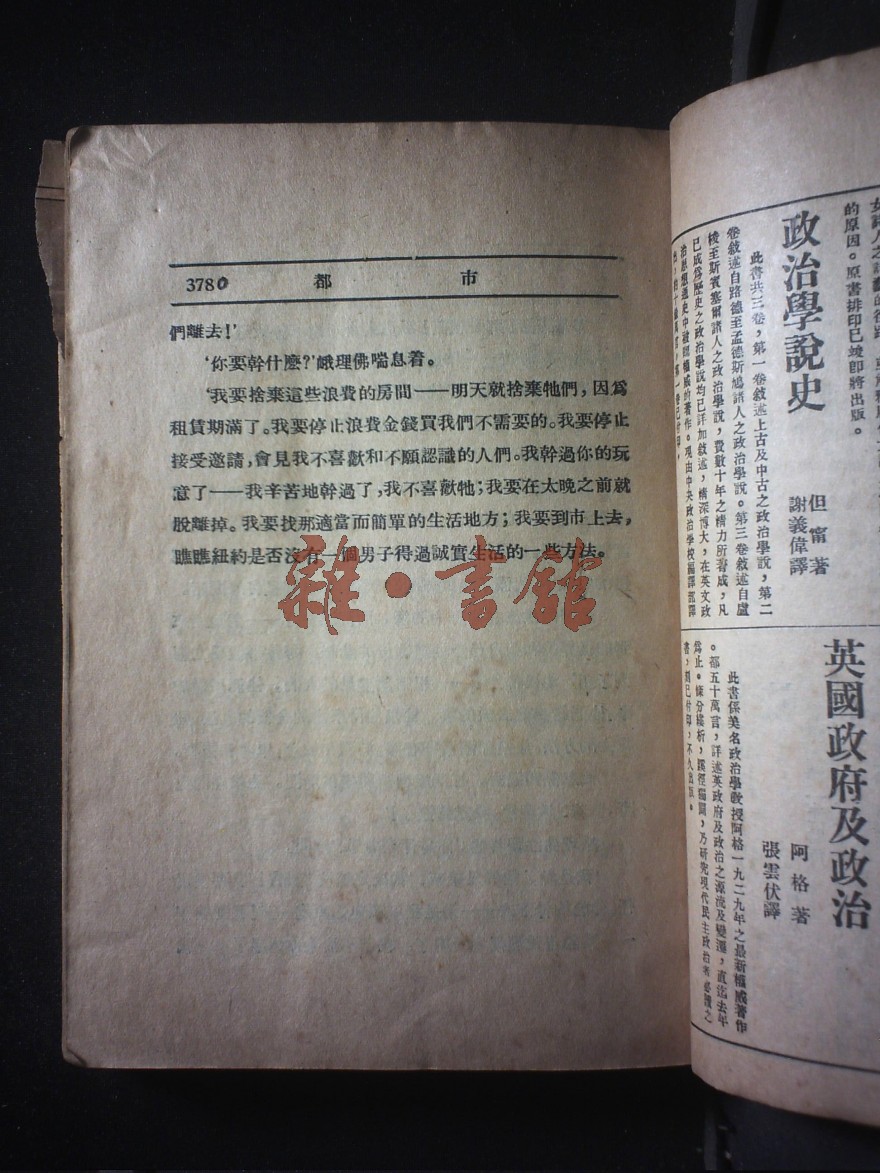 3780 都市
們離去!’
‘你要幹什麽?’峨理佛喘息着。
‘我要捨棄這些浪費的房間——明天就捨棄牠們，因爲
租賃期滿了。我要停止浪費金錢買我們不需要的。我要停止
接受邀請，會見我不喜歡和不願認識的人們。我幹過你的玩
意了——我辛苦地幹過了，我不喜歡牠；我要在太晚之前就
脫離掉。我要找那適當而簡單的生活地方；我要到市上去，
瞧瞧紐約是否沒有一個男子得過誠實生活的一些方法。
雜·書館
的原因。原書排印已竣卽將出版。
政治學說史
但甯著
謝義偉譯
此書共三卷，第一卷敘述上古及中古之政治學說，第二
卷敘述自路德至孟德斯鳩諸人之政治學說。第三卷敘述自盧
梭至斯賓塞爾諸人之政治學說，費數十年之精力所著成，凡
已成爲歷史之政治學說均已詳加敘述，精深博大，在英文政
治思想通史中被認權威的著作。現由中央政治學校編譯部譯
英國政府及政治
阿格著
張雲伏譯
此書係美名政治學教授阿格一九二九年之最新權威著作
。都五十萬言，詳述英政府及政治之源流及變遷，直迄去年
爲止。條分縷析，蹊徑獨闢，乃研究現代民主政治者必讀之
書，現已付印，不久出版。